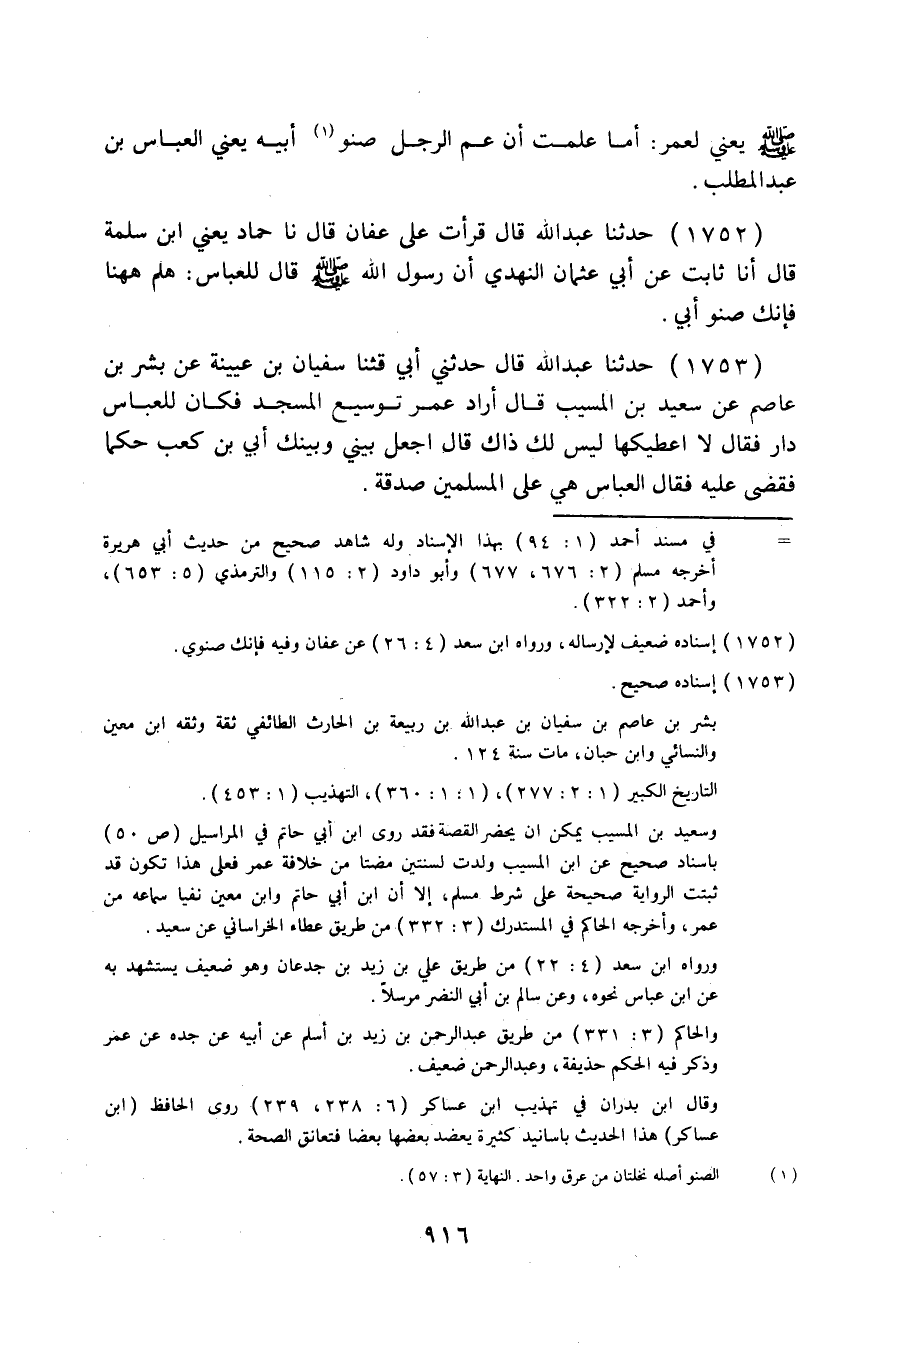 ﷺ يعني لعمر: أما علمت أن عم الرجل صنو (١) أبيه يعني العباس بن
عبدالمطلب .
(١٧٥٢) حدثنا عبدالله قال قرأت على عفان قال نا حماد يعني ابن سلمة
قال أنا ثابت عن أبي عثمان النهدي أن رسول الله ﷺ قال للعباس: هلم ههنا
فإنك صنو أبي .
(١٧٥٣) حدثنا عبدالله قال حدثني أبي قثنا سفيان بن عيينة عن بشر بن
عاصم عن سعيد بن المسيب قال أراد عمر توسيع المسجد فكان للعباس
دار فقال لا اعطيكها ليس لك ذاك قال اجعل بيني وبينك أبي بن كعب حكما
فقضى عليه فقال العباس هي على المسلمين صدقة .
= في مسند أحمد (١: ٩٤) بهذا الإسناد وله شاهد صحيح من حديث أبي هريرة
أخرجه مسلم (٢: ٦٧٦، ٦٧٧) وأبو داود (٢: ١١٥) والترمذي (٥: ٦٥٣)،
وأحمد (٢: ٣٢٢).
(١٧٥٢) إسناده ضعيف لإرساله، ورواه ابن سعد (٤: ٢٦) عن عفان وفيه فإنك صنوي.
(١٧٥٣) إسناده صحيح.
بشر بن عاصم بن سفيان بن عبدالله بن ربيعة بن الحارث الطائفي ثقة وثقه ابن معين
والنسائي وابن حبان، مات سنة ١٢٤ .
التاريخ الكبير (١: ٢: ٢٧٧)، (١: ١: ٣٦٠)، التهذيب (١: ٤٥٣).
وسعيد بن المسيب يمكن ان يحضر القصة فقد روى ابن أبي حاتم في المراسيل (ص ٥٠)
باسناد صحيح عن ابن المسيب ولدت لسنتين مضتا من خلافة عمر فعلى هذا تكون قد
ثبتت الرواية صحيحة على شرط مسلم، إلا أن ابن أبي حاتم وابن معين نفيا سماعه من
عمر، وأخرجه الحاكم في المستدرك (٣: ٣٣٢) من طريق عطاء الخراساني عن سعيد .
ورواه ابن سعد (٤: ٢٢) من طريق علي بن زيد بن جدعان وهو ضعيف يستشهد به
عن ابن عباس نحوه، وعن سالم بن أبي النضر مرسلاً .
والحاكم (٣: ٣٣١) من طريق عبدالرحمن بن زيد بن أسلم عن أبيه عن جده عن عمر
وذكر فيه الحكم حذيفة، وعبدالرحمن ضعيف.
وقال ابن بدران في تهذيب ابن عساكر (٦: ٢٣٨، ٢٣٩) روى الحافظ (ابن
عساكر) هذا الحديث باسانيد كثيرة يعضد بعضها بعضا فتعانق الصحة .
(١) الصنو أصله نخلتان من عرق واحد . النهاية (٣: ٥٧).
٩١٦